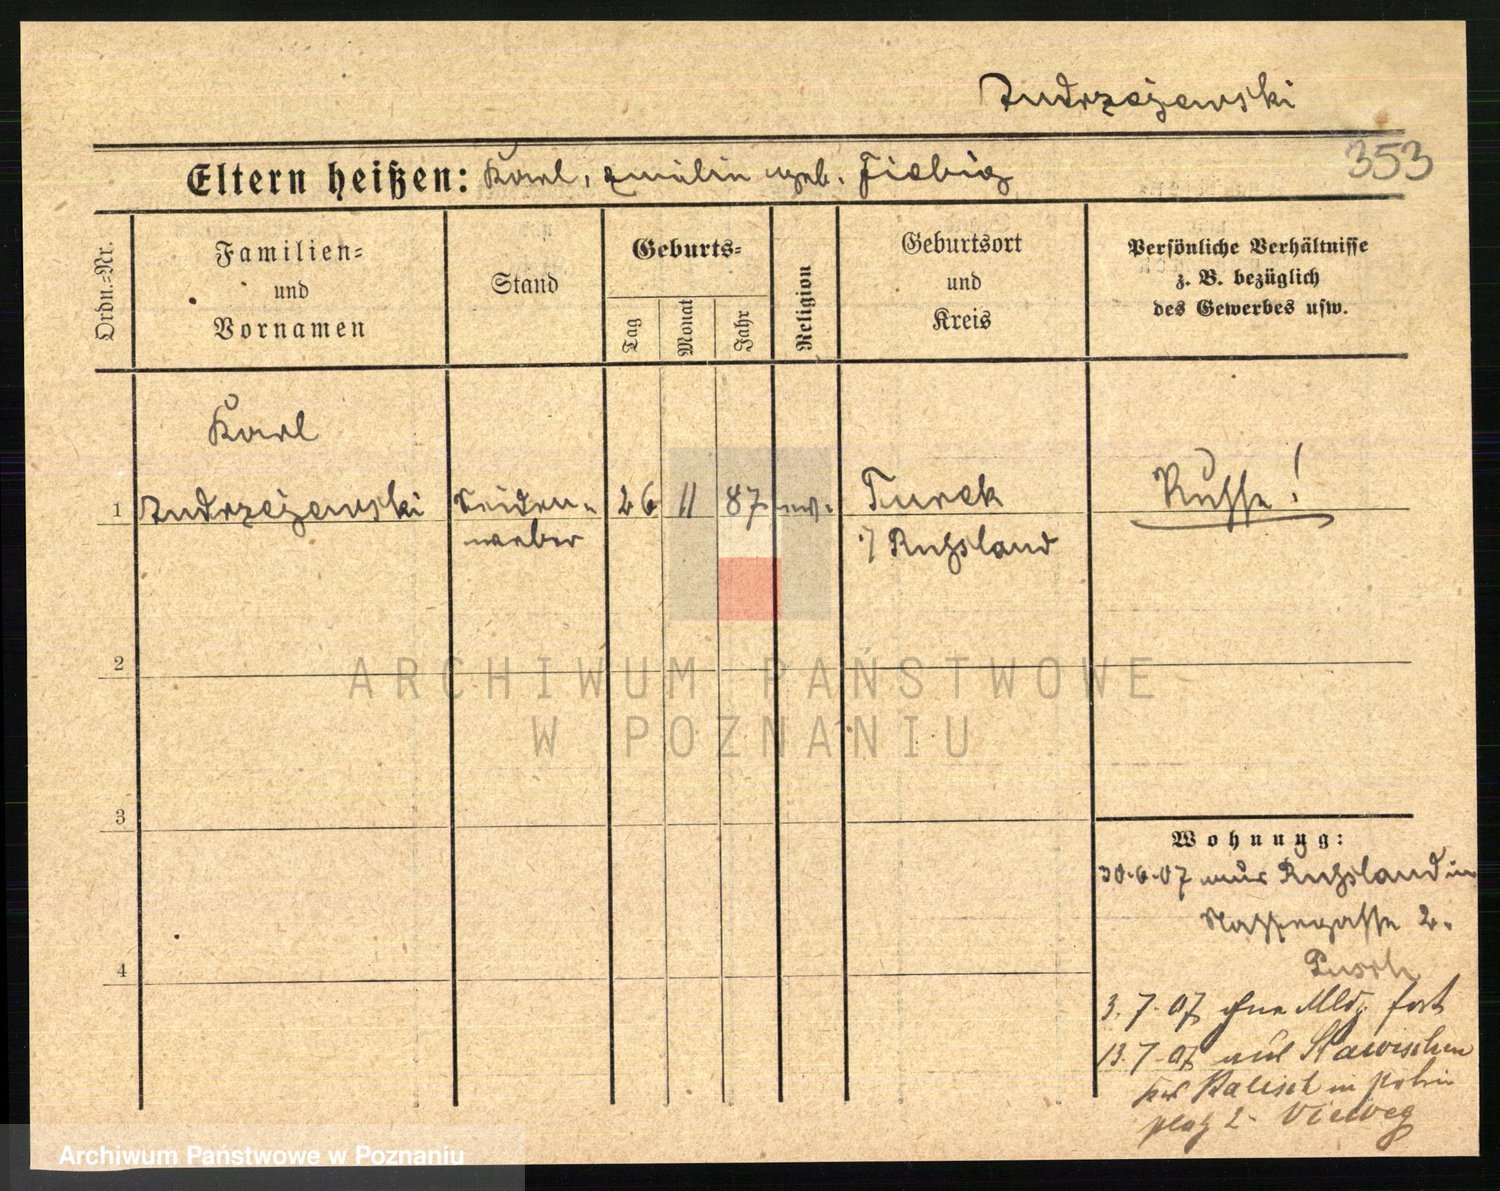 Andrzejewski
353
Eltern heißen: Karl, Emilie geb. Fiebig
Ordn.-Nr.
Familien-
und
Vornamen
Stand
Geburts-
Tag
Monat
Jahr
Religion
Geburtsort
und
Kreis
Persönliche Verhältnisse
z. B. bezüglich
des Gewerbes usw.
Karl
1 Andrzejewski Seiden- 26 11 87 ev. Turek Russe!
weber i/ Russland
2
ARCHIWUM PAŃSTWOWE
W POZNANIU
3
Wohnung:
30.6.07 aus Russland in
gasse 2.
4
3.7.07 ohne Meldg fort
13.7.07 aus Stawischen
Kalisch in
platz 2. Vieweg
Archiwum Państwowe w Poznaniu